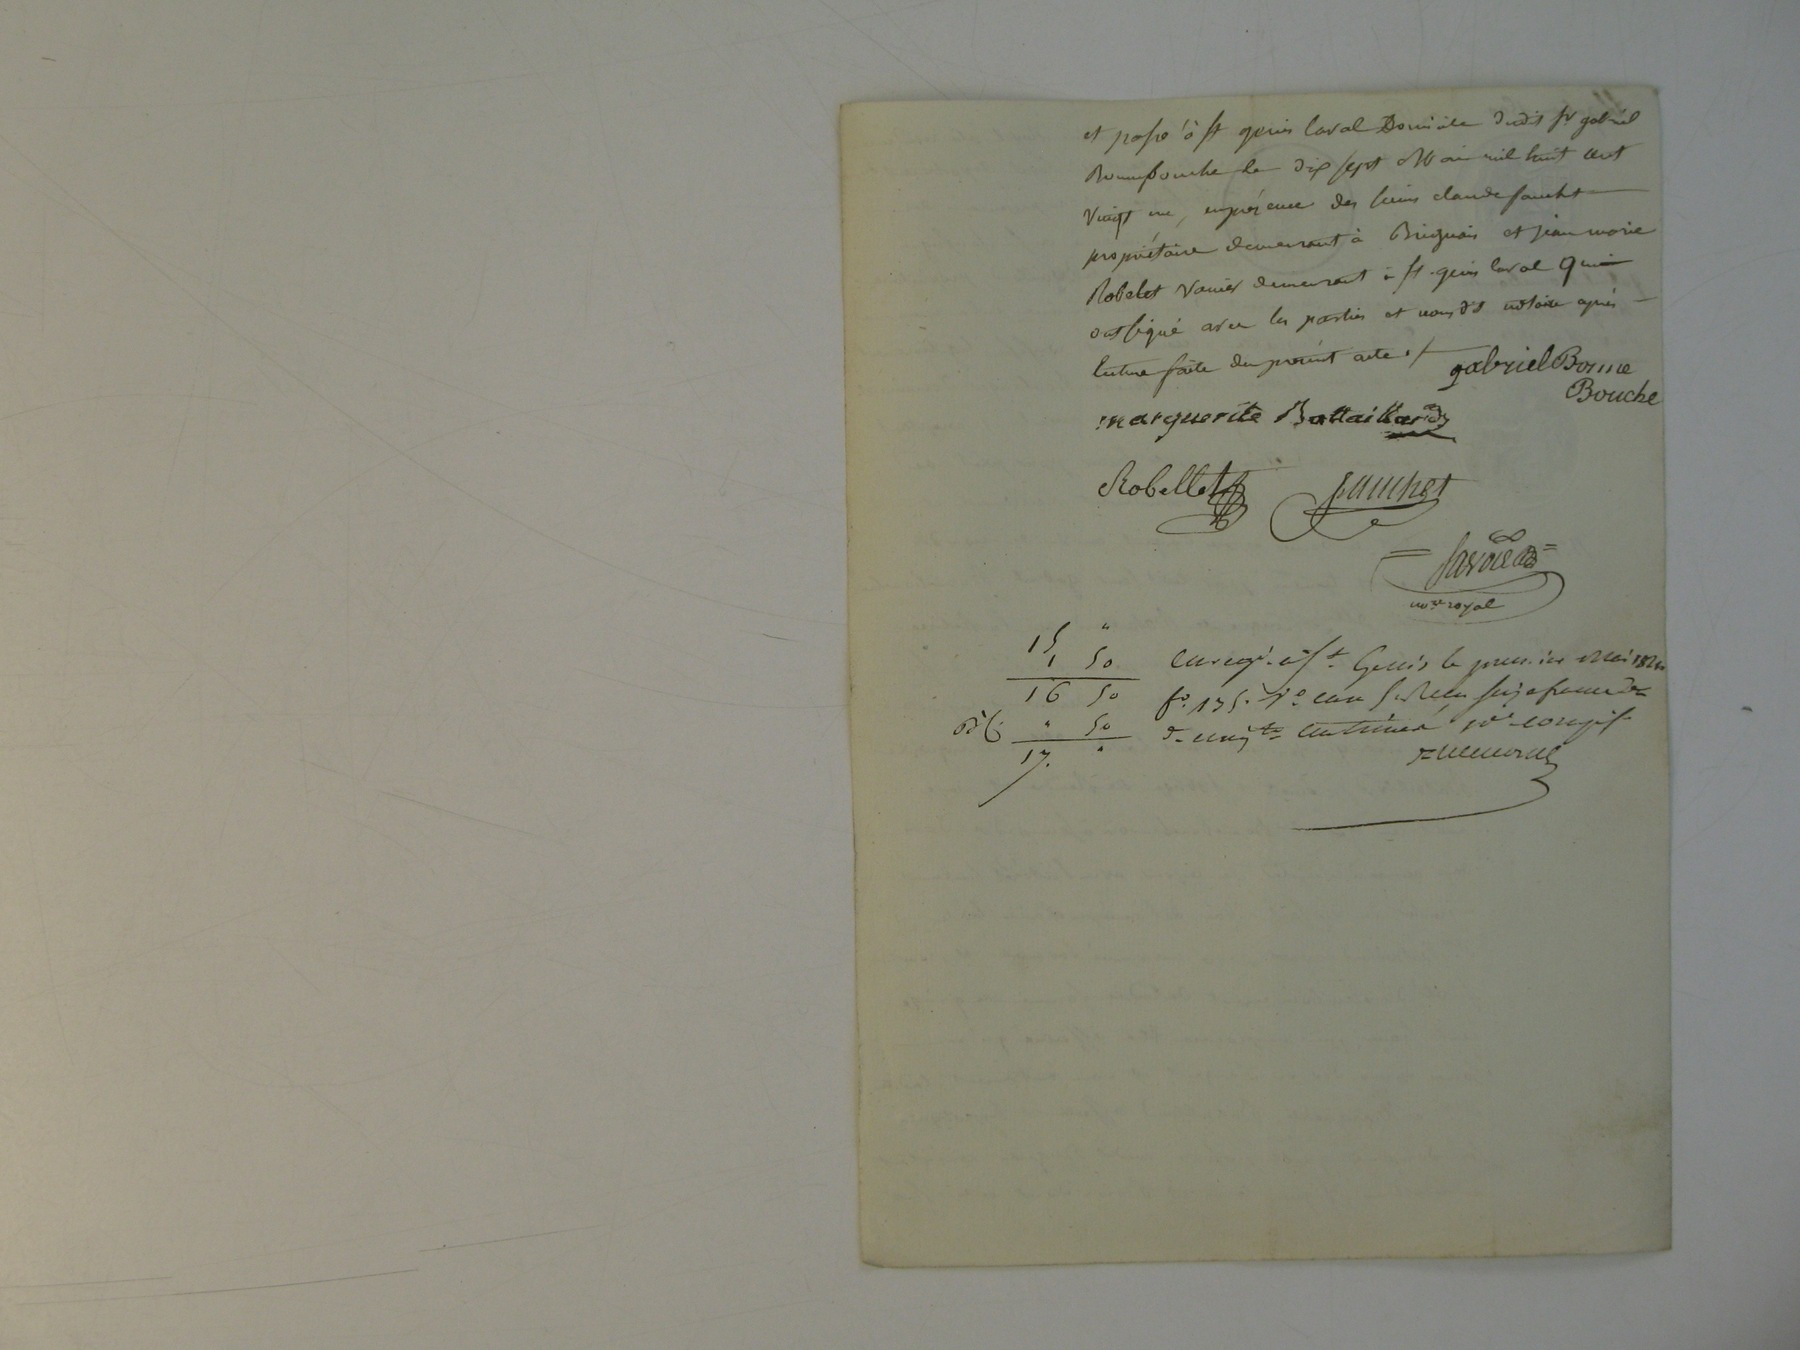 et passé à st genis laval Domicile dudit sr gabriel
Bonnebouche le dix sept Mai mil huit cent
vingt un, en présence des sieurs claude fauchet
propriétaire demeurant à Brignais et jean marie
Robelet vanier demeurant à st genis laval qui
ont signé avec les parties et nous dt notaire après
lecture faite du présent acte ./.
gabriel Bonne
Bouche
marguerite Battaillard
Robellet fauchet
nore royal
15 "
1 50
16 50
" 50
17. "
Enregé. à St. Genis le
fo. 135. vo. reçu seize francs